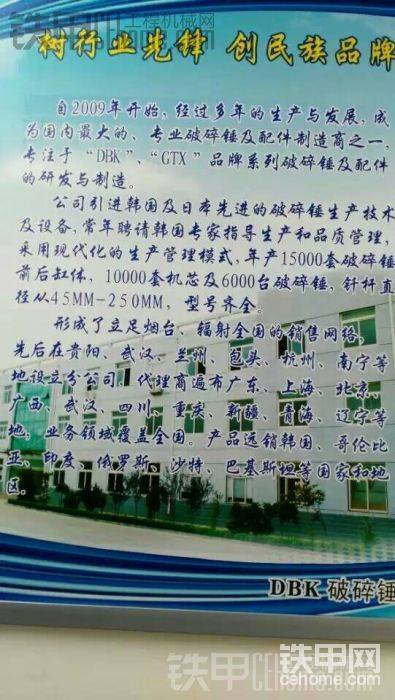 铁甲工程机械网
树行业先锋 创民族品牌
自2009年开始，经过多年的生产与发展，成
为国内最大的、专业破碎锤及配件制造商之一，
专注于“DBK”、“GTX”品牌系列破碎锤及配件
的研发与制造。
公司引进韩国及日本先进的破碎锤生产技术
及设备，常年聘请韩国专家指导生产和品质管理，
采用现代化的生产管理模式，年产15000套破碎锤
前后缸体，10000套机芯及6000台破碎锤，钎杆直
径从45MM-250MM，型号齐全。
形成了立足烟台，辐射全国的销售网络，
先后在贵阳、武汉、兰州、包头、杭州、南宁等
地设立分公司，代理商遍布广东、上海、北京、
广西、武汉、四川、重庆、新疆、青海、辽宁等
地，业务领域覆盖全国。产品远销韩国、哥伦比
亚、印度、俄罗斯、沙特、巴基斯坦等国家和地
区。
DBK 破碎锤
铁甲
铁甲网
cehome.com